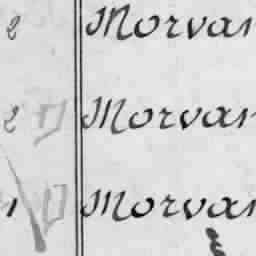 e Morvan
e Morvan
Morvan